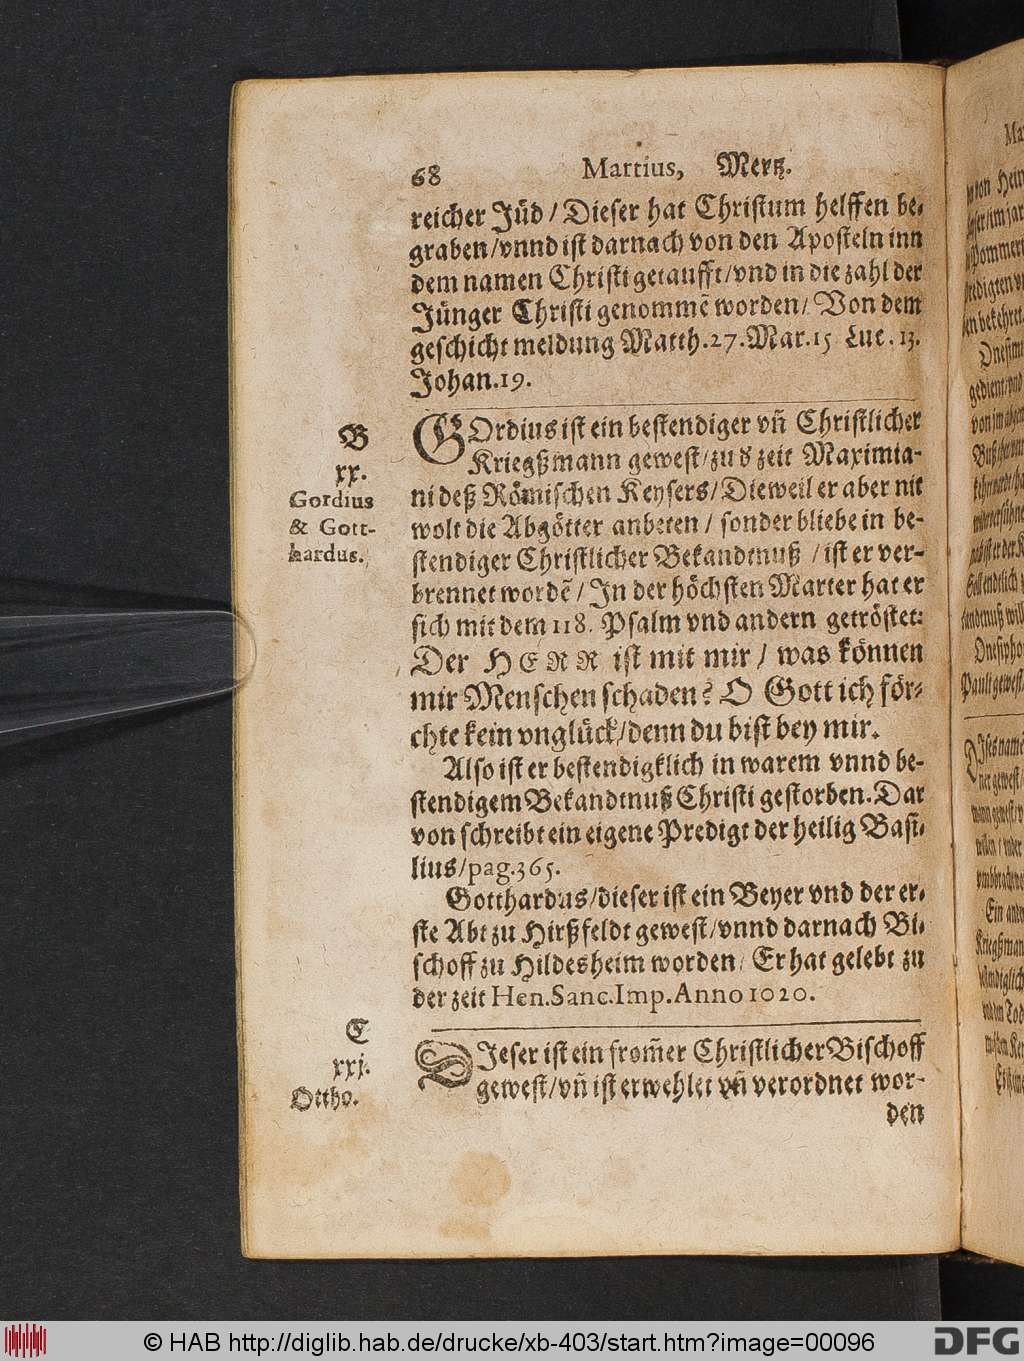 68 Martius, Mertz.
reicher Jüd / Dieser hat Christum helffen be-
graben/vnnd ist darnach von den Aposteln inn
dem namen Christi getaufft/vnd in die zahl der
Jünger Christi genommē worden/ Von dem
geschicht meldung Matth.27.Mar.15 Luc. 13.
Johan.19.
B
xx.
Gordius
& Gott-
hardus.
GOrdius ist ein bestendiger vn̄ Christlicher
Kriegßmann gewest/zu d zeit Maximia-
ni deß Römischen Keysers/Dieweil er aber nit
wolt die Abgötter anbeten / sonder bliebe in be-
stendiger Christlicher Bekandtnuß / ist er ver-
brennet wordē / In der höchsten Marter hat er
sich mit dem 118. Psalm vnd andern getröstet:
Der HERR ist mit mir / was können
mir Menschen schaden? O Gott ich för-
chte kein vnglück/denn du bist bey mir.
Also ist er bestendigklich in warem vnnd be-
stendigem Bekandtnuß Christi gestorben. Dar
von schreibt ein eigene Predigt der heilig Basi-
lius/pag.365.
Gotthardus/dieser ist ein Beyer vnd der er-
ste Abt zu Hirßfeldt gewest/vnnd darnach Bi-
schoff zu Hildesheim worden/ Er hat gelebt zu
der zeit Hen.Sanc.Imp.Anno 1020.
C
xxj.
Ottho.
DIeser ist ein from̄er Christlicher Bischoff
gewest/vn̄ ist erwehlet vn̄ verordnet wor-
den
© HAB http://diglib.hab.de/drucke/xb-403/start.htm?image=00096
DFG